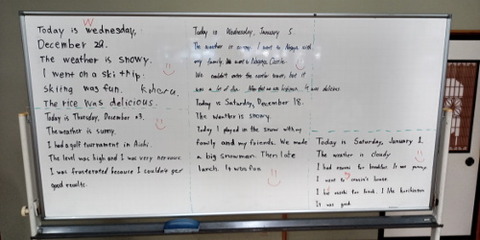 W
Today is wednesday,
December 29.
The weather is snowy.
I went on a ski trip.
skiing was fun. Koharu.
The rice was delicious.
Today is Thursday, December 23.
The weather is sunny.
I had a golf tournament in Aichi.
The level was high and I was very nervous
I was frustrated because I couldn't get
good results.
Today is Wednesday, January 5.
The weather is sunny. I went to Nagoya with
my family. We went to Nagoya Castle.
We couldn't enter the castle tower, but it
was a lot of fun. it was delicious
Today is Saturday, December 18.
The weather is snowy.
Today I played in the snow with my
family and my friends. We made
a big snowman. Then I ate
lunch. It was fun.
Today is Saturday, January 1.
The weather is cloudy
I had for breakfast. It was yummy.
I went to house.
I for lunch. I like
It was good.